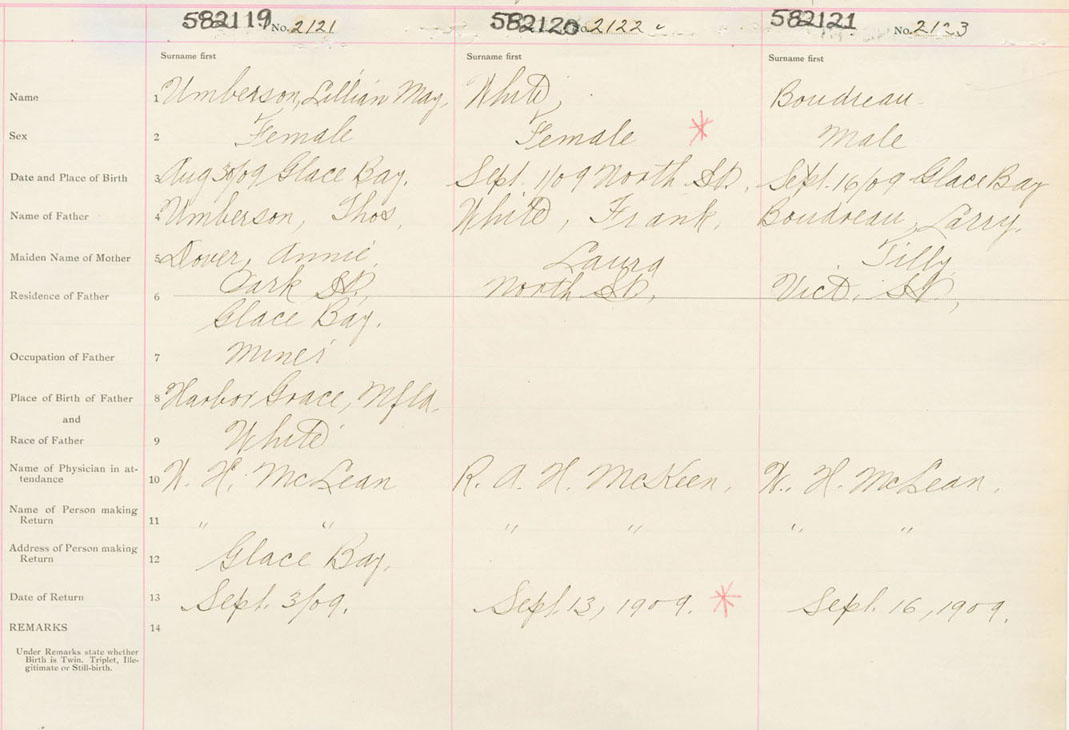 582119 No. 2121 582120 No. 2122 582121 No. 2123
Surname first Surname first Surname first
Name 1 Umberson, Lillian May White, Boudreau
Sex 2 Female Female Male
Date and Place of Birth 3 Aug 30/09 Glace Bay. Sept. 1/09 North St. Sept. 16/09 Glace Bay
Name of Father 4 Umberson, Thos. White, Frank. Boudreau, Larry.
Maiden Name of Mother 5 Dover, Annie. Laura Tilly
Residence of Father 6 Park St, North St, Vict. St,
Glace Bay.
Occupation of Father 7 Miner
Place of Birth of Father 8 Harbor Grace, Nfld.
and
Race of Father 9 White
Name of Physician in at-
tendance 10 W. H. McLean R. A. H. McKeen, W. H. McLean.
Name of Person making
Return 11 " " " " " "
Address of Person making
Return 12 Glace Bay.
Date of Return 13 Sept. 3/09. Sept. 13, 1909. Sept. 16, 1909.
REMARKS 14
Under Remarks state whether
Birth is Twin. Triplet, Ille-
gitimate or Still-birth.